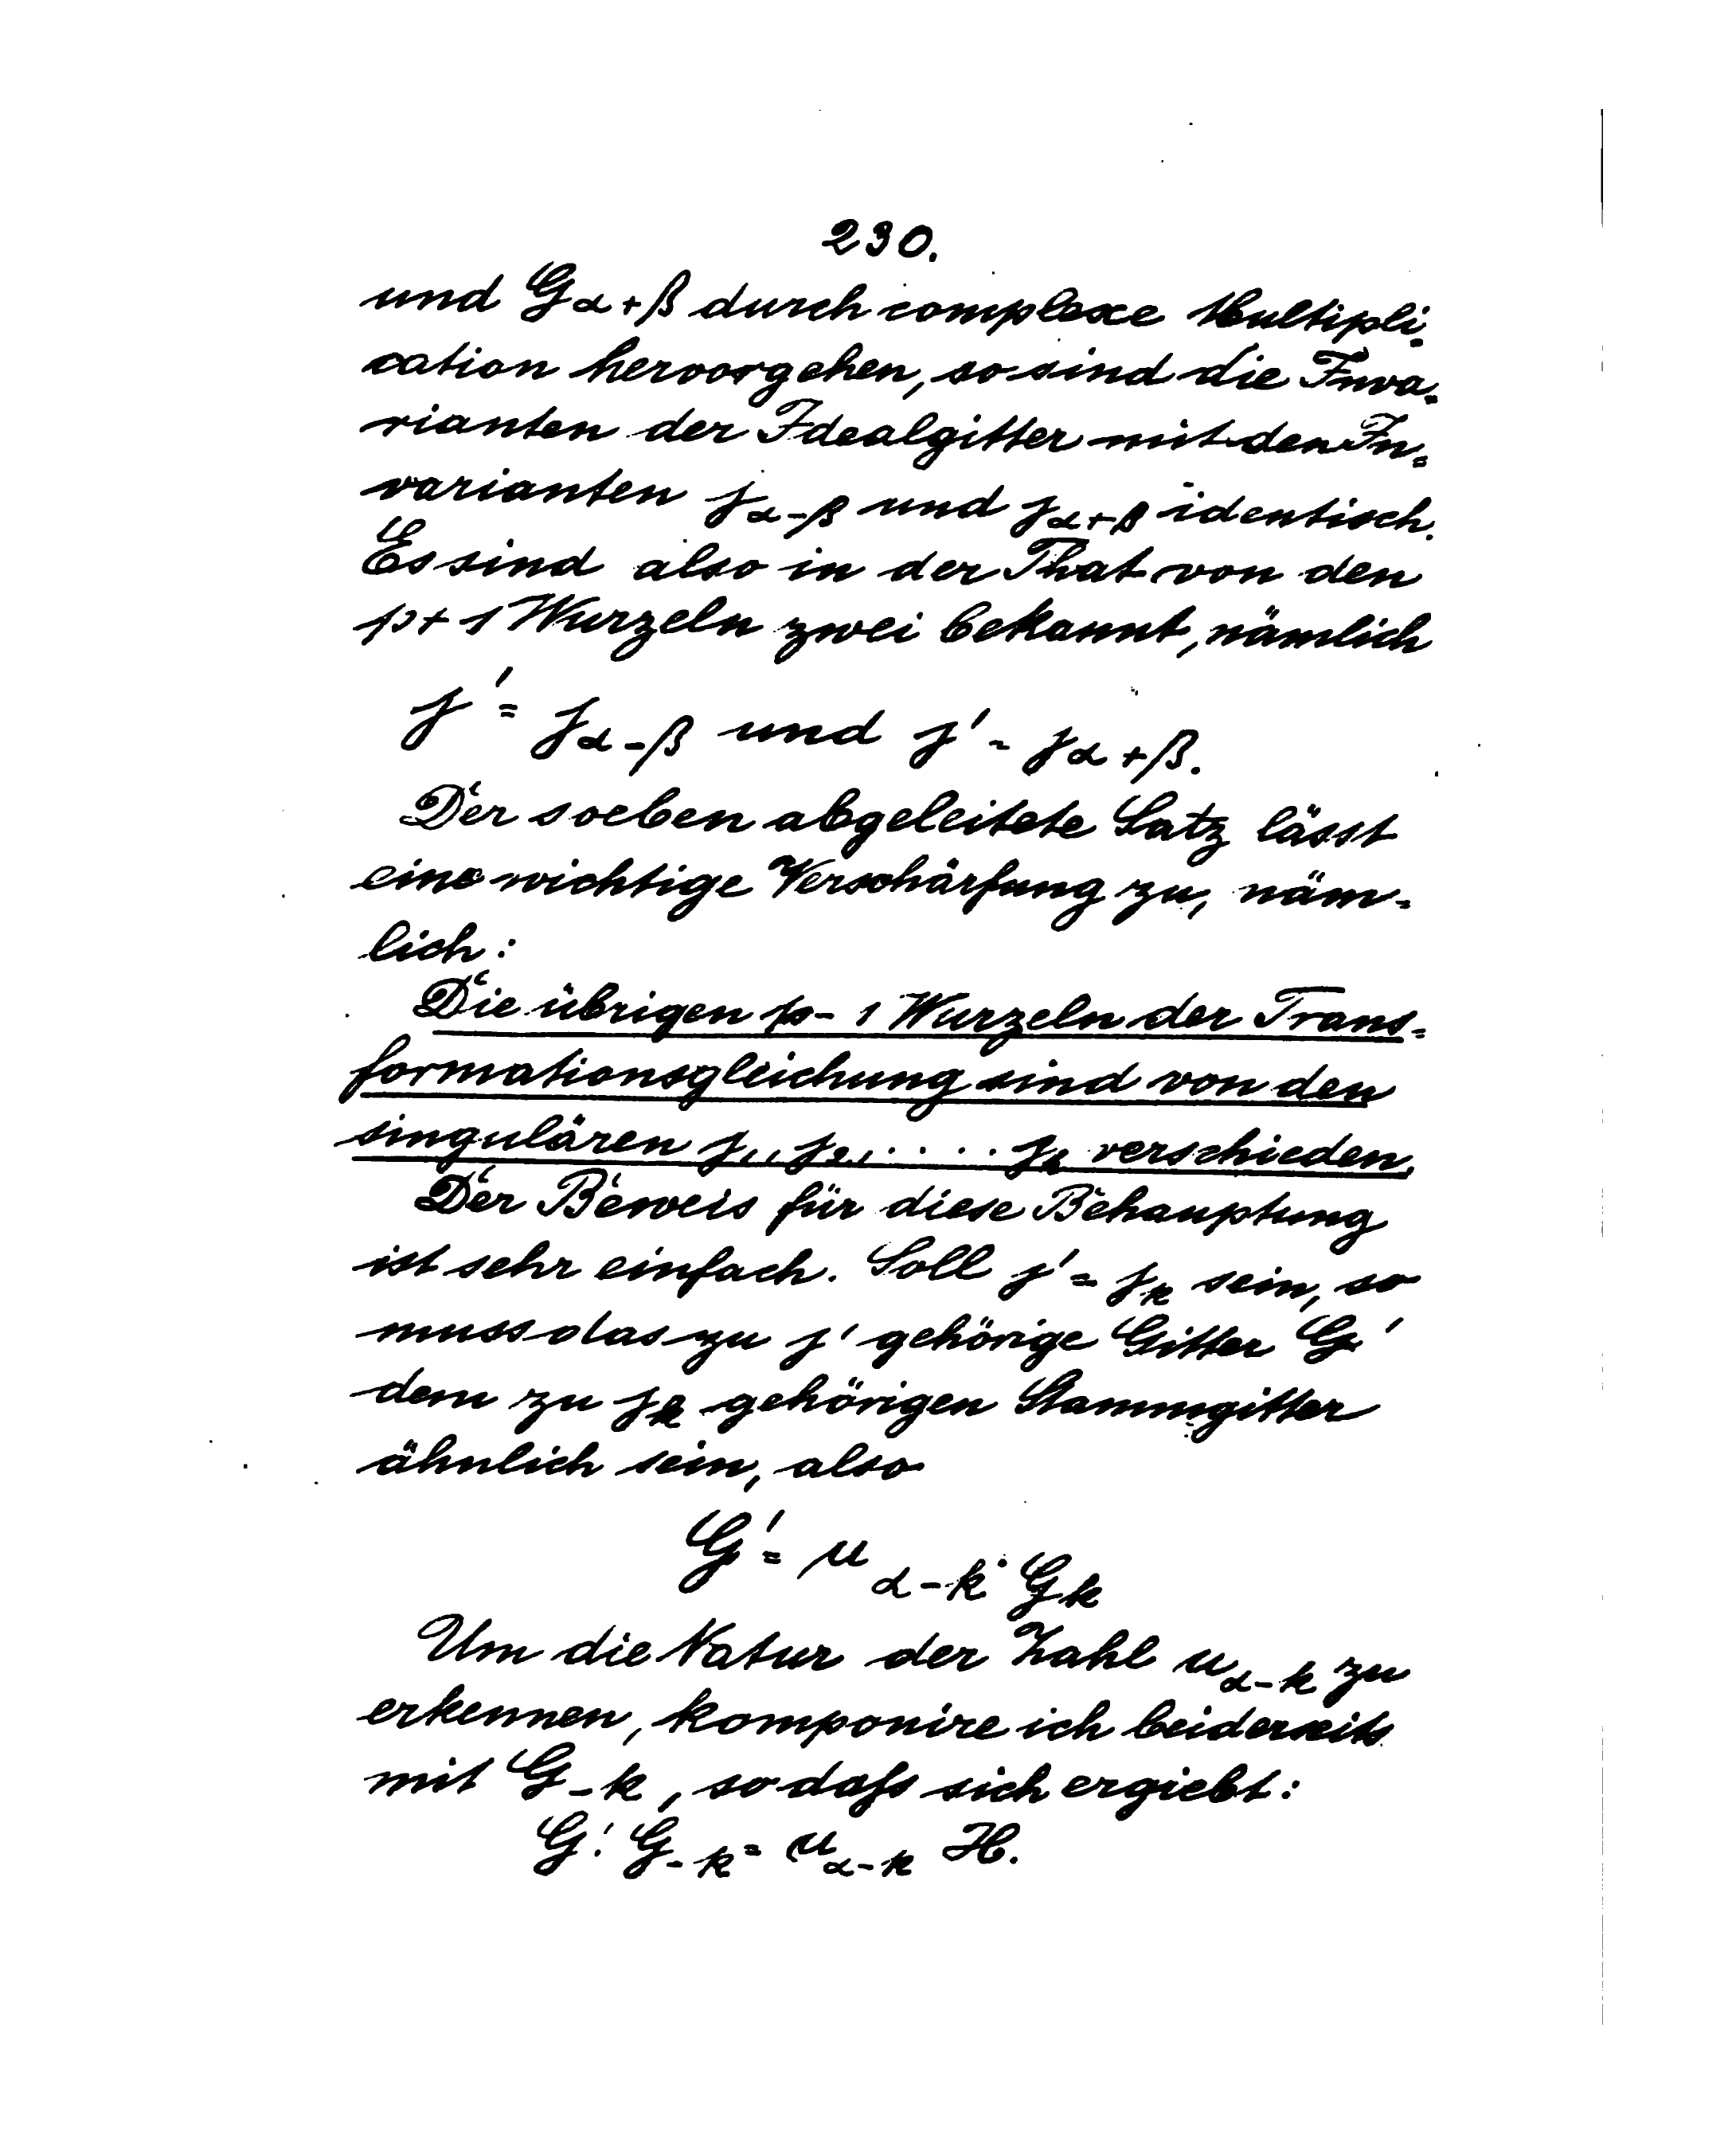 230.
und G_{α+β} durch complexe Multipli-
cation hervorgehen, so sind die Inva-
rianten der Idealgitter mit den In=
varianten j_{α-β} und j_{α+β} identisch.
Es sind also in der That von den
p+1 Wurzeln zwei bekannt, nämlich
j' = j_{α-β} und j' = j_{α+β}.
Der soeben abgeleitete Satz lässt
eine wichtige Verschärfung zu, näm=
lich:
Die übrigen p-1 Wurzeln der Trans=
formationsgleichung sind von den
singulären j_1, j_2, ..... j_h verschieden.
Der Beweis für diese Behauptung
ist sehr einfach. Soll j' = j_k sein, so
muss das zu j' gehörige Gitter G'
dem zu j_k gehörigen Stammgitter
ähnlich sein, also
G' = μ_{α-k} · G_k
Um die Natur der Zahl μ_{α-k} zu
erkennen, komponire ich beiderseits
mit G_{-k}, so daſs sich ergiebt:
G' · G_{-k} = μ_{α-k} H.